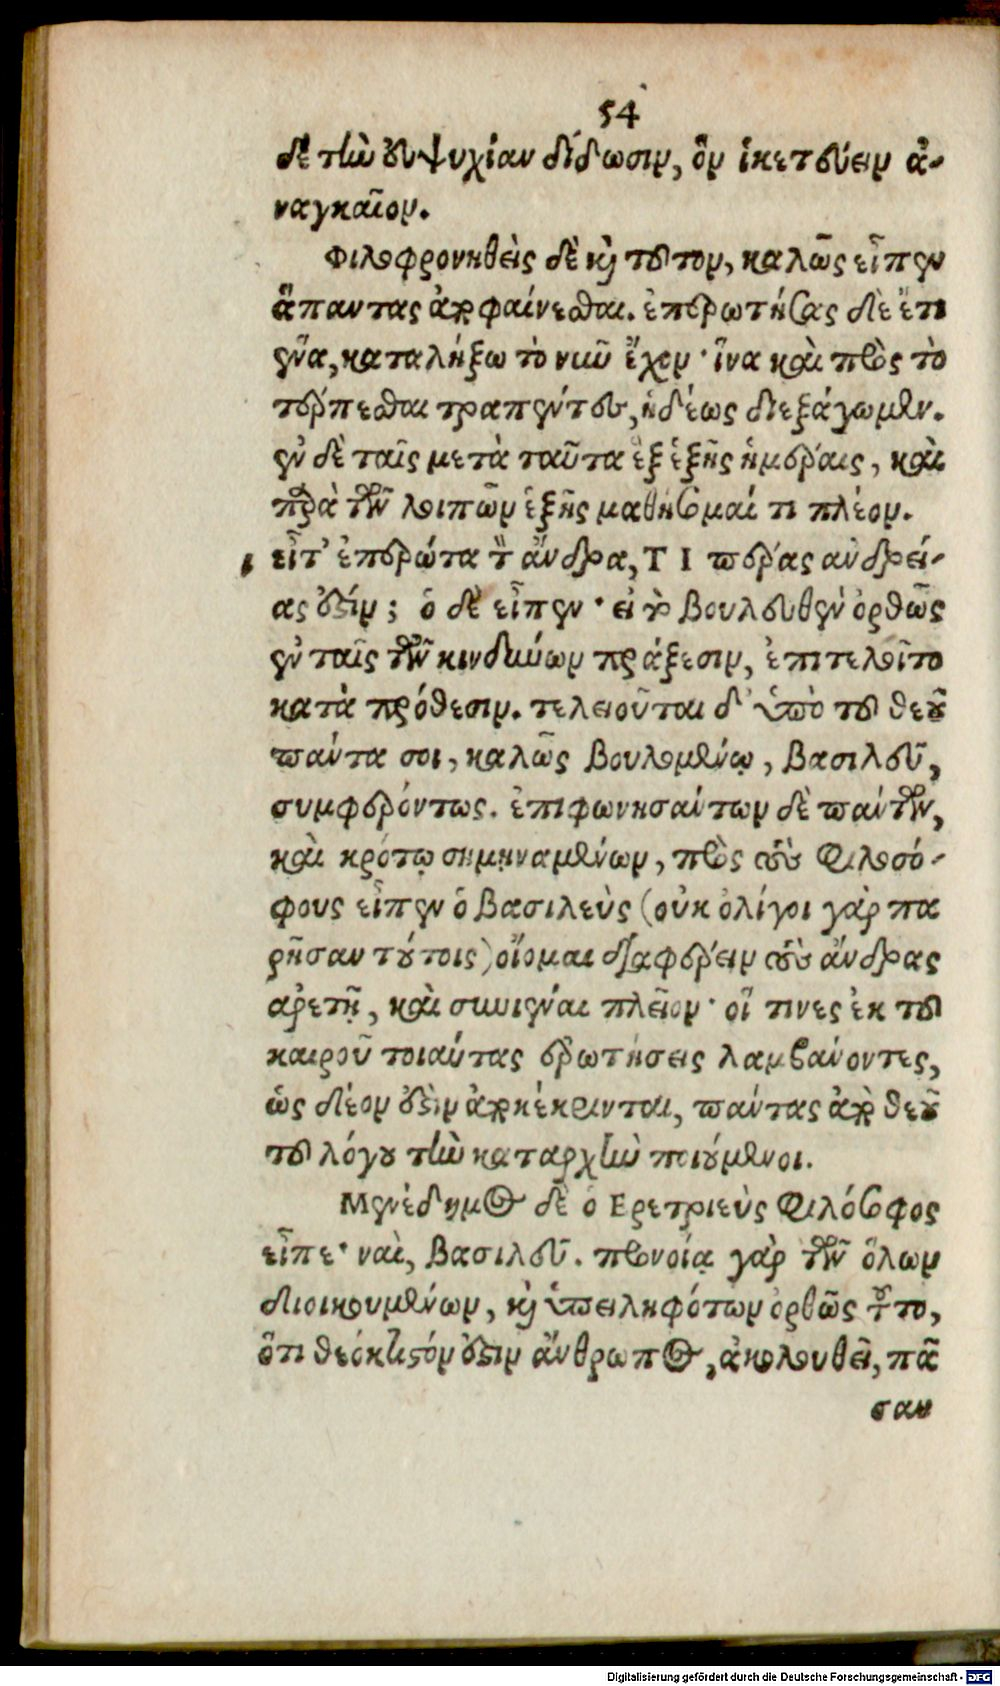 54
δὲ τὴν εὐψυχίαν δίδωσιν, ὃν ἱκετεύειν ἀ-
ναγκαῖον.
Φιλοφρονηθεὶς δὲ καὶ τοῦτον, καλῶς εἶπεν
ἅπαντας ἀποφαίνεσθαι. ἐπερωτήσας δὲ ἔτι
ἕνα, καταλήξω τὸ νῦν ἔχον· ἵνα καὶ πρὸς τὸ
τέρπεσθαι τραπέντες, ἡδέως διεξάγωμεν.
ἐν δὲ ταῖς μετὰ ταῦτα ἓξ ἑξῆς ἡμέραις, καὶ
παρὰ τῶν λοιπῶν ἑξῆς μαθήσομαί τι πλέον.
εἶτ᾽ ἐπερώτα τὸν ἄνδρα, ΤΙ πέρας ἀνδρεί-
ας ἐστίν; ὁ δὲ εἶπεν· εἰ τὸ βουλευθὲν ὀρθῶς
ἐν ταῖς τῶν κινδύνων πράξεσιν, ἐπιτελοῖτο
κατὰ πρόθεσιν. τελειοῦται δ᾽ ὑπὸ τοῦ θεοῦ
πάντα σοι, καλῶς βουλομένῳ, βασιλεῦ,
συμφερόντως. ἐπιφωνησάντων δὲ πάντων,
καὶ κρότῳ σημηναμένων, πρὸς τοὺς φιλοσό-
φους εἶπεν ὁ βασιλεὺς (οὐκ ὀλίγοι γὰρ πα
ρῆσαν τούτοις) οἴομαι διαφέρειν τοὺς ἄνδρας
ἀρετῇ, καὶ συνιέναι πλεῖον· οἵ τινες ἐκ τοῦ
καιροῦ τοιαύτας ἐρωτήσεις λαμβάνοντες,
ὡς δέον ἐστὶν ἀποκέκρινται, πάντας ἀπὸ θεοῦ
τοῦ λόγου τὴν καταρχὴν ποιούμενοι.
Μενέδημος δὲ ὁ Ερετριεὺς φιλόσοφος
εἶπε· ναὶ, βασιλεῦ. προνοίᾳ γὰρ τῶν ὅλων
διοικουμένων, καὶ ὑπειληφότων ὀρθῶς τοῦτο,
ὅτι θεόκτιστόν ἐστιν ἄνθρωπος, ἀκολουθεῖ, πᾶ
σαν
Digitalisierung gefördert durch die Deutsche Forschungsgemeinschaft - DFG